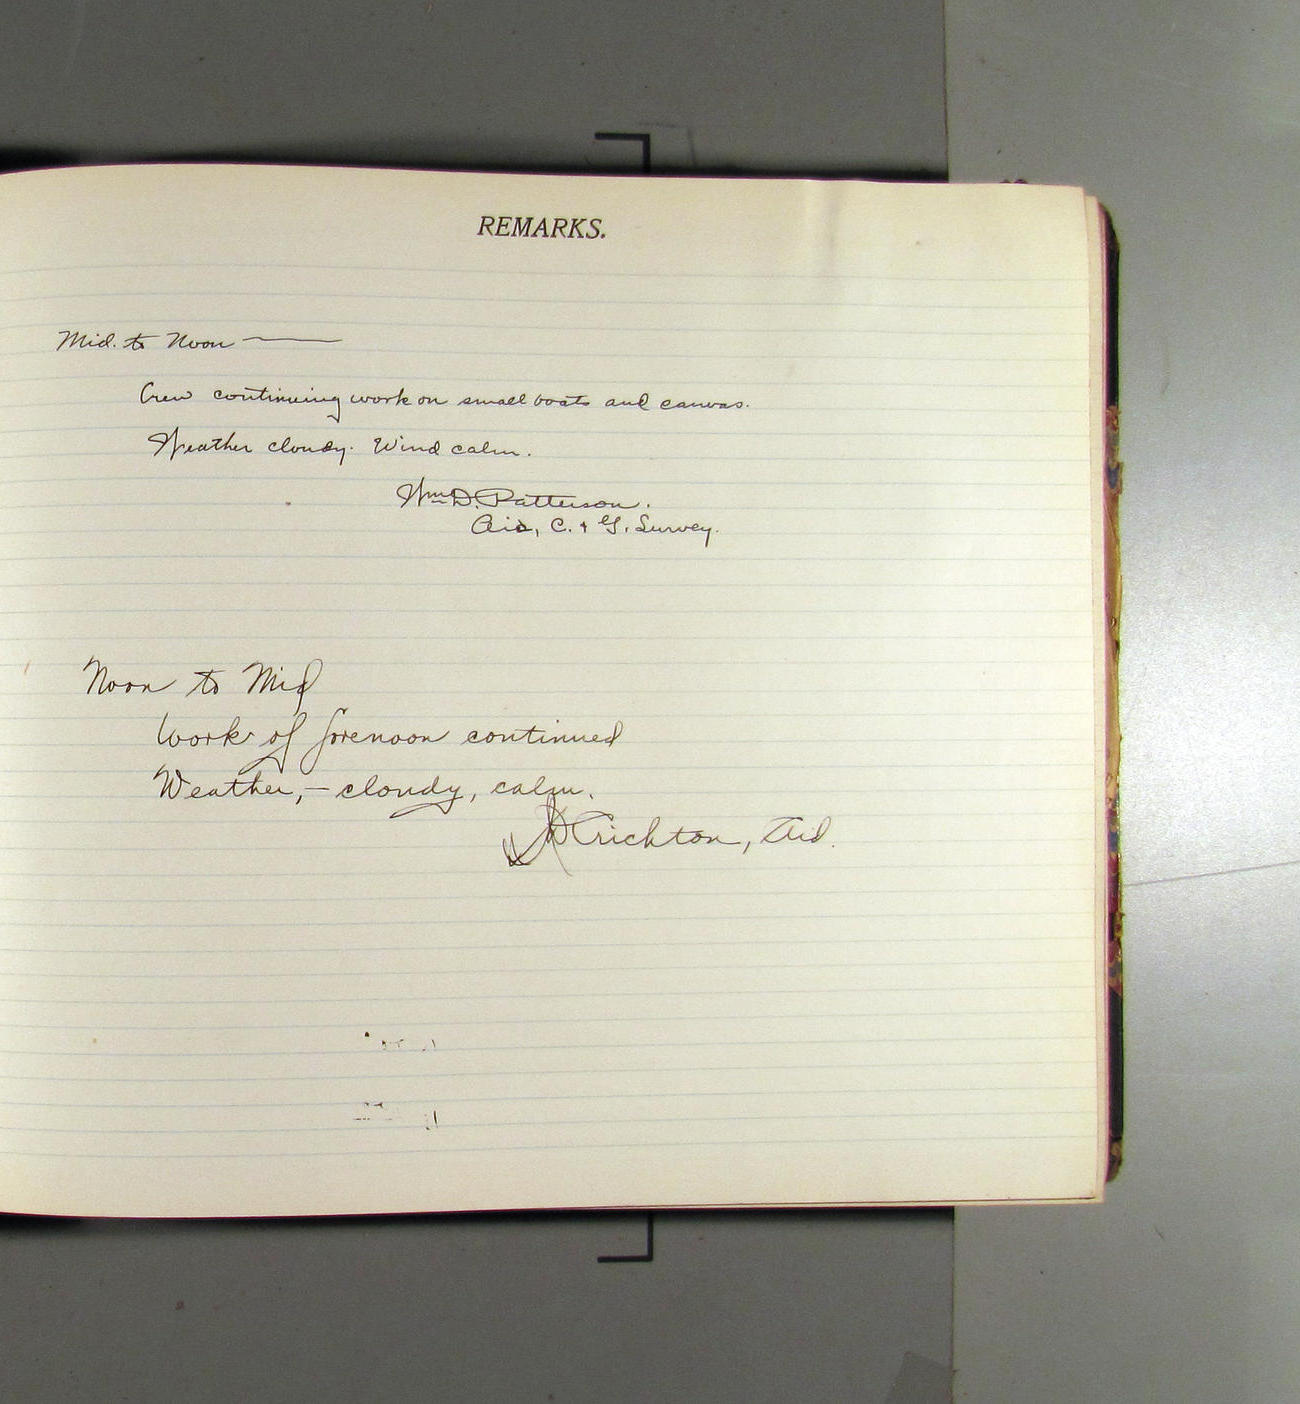 REMARKS.
Mid. to Noon ———
Crew continuing work on small boats and canvas.
Weather cloudy. Wind calm.
Wm D. Patterson.
Aid, C. & G. Survey.
Noon to Mid
Work of forenoon continued
Weather,— cloudy, calm.
Crichton, Aid.